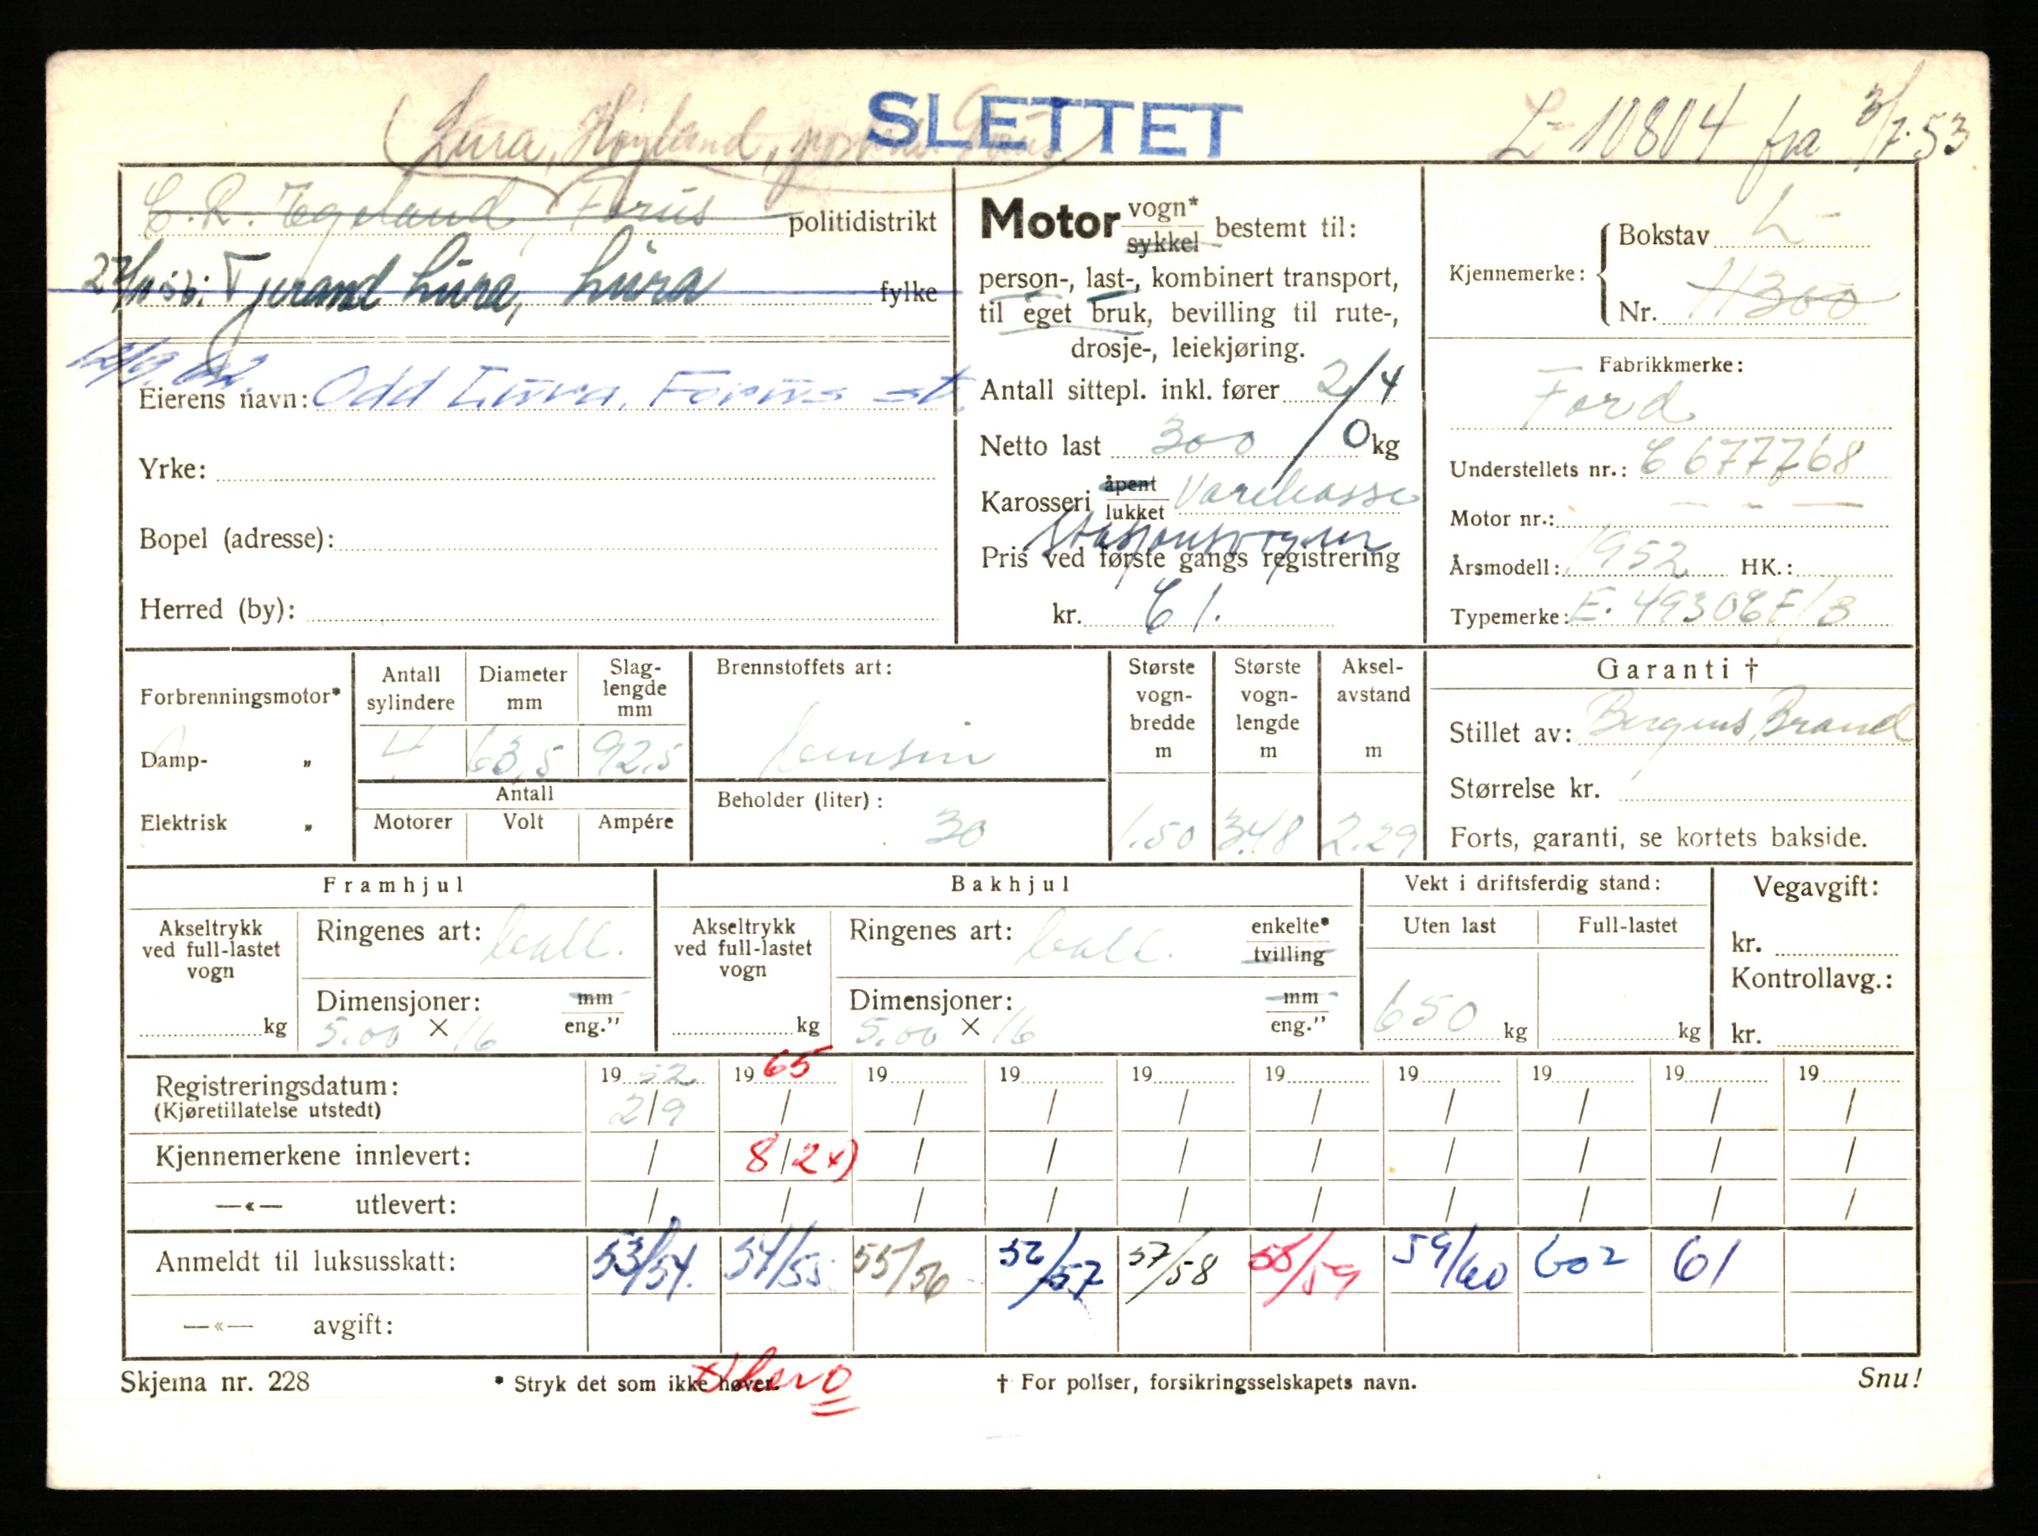 SLETTET
(Lura, Høyland, Forus)
L-10804 fra 3/7.53
E. R. Egeland, Forus politidistrikt
27/11 56: Tjerand Lura, Lura fylke
12/9.62.
Eierens navn: Odd Lura, Forus st.
Yrke:
Bopel (adresse):
Herred (by):
Motor vogn* sykkel bestemt til:
person-, last-, kombinert transport,
til eget bruk, bevilling til rute-,
drosje-, leiekjøring.
Antall sittepl. inkl. fører 2/4
Netto last 300 / 0 kg
Karosseri åpent lukket Varekasse
Stasjonsvogn
Pris ved første gangs registrering
kr. E 1.
Kjennemerke: Bokstav L-
Nr. 11300
Fabrikkmerke:
Ford
Understellets nr.: C 677768
Motor nr.: — - —
Årsmodell: 1952 HK.:
Typemerke: E. 4930CF/3
Forbrenningsmotor*
Damp- „
Elektrisk „
Antall sylindere
Diameter mm
Slag-lengde mm
4 63,5 92,5
Antall
Motorer Volt Ampére
Brennstoffets art:
bensin
Beholder (liter):
30
Største vogn-bredde m
1.50
Største vogn-lengde m
3.48
Aksel-avstand m
2.29
Garanti †
Stillet av: Bergens Brand
Størrelse kr.
Forts, garanti, se kortets bakside.
Framhjul
Akseltrykk ved full-lastet vogn
kg
Ringenes art: ball.
Dimensjoner: mm eng."
5.00 × 16
Bakhjul
Akseltrykk ved full-lastet vogn
kg
Ringenes art: ball. enkelte* tvilling
Dimensjoner: mm eng."
5.00 × 16
Vekt i driftsferdig stand:
Uten last Full-lastet
650 kg kg
Vegavgift:
kr.
Kontrollavg.:
kr.
Registreringsdatum: 19 52 19 65 19 19 19 19 19 19 19 19
(Kjøretillatelse utstedt) 2/9 / / / / / / / / /
Kjennemerkene innlevert: / 8/2 x) / / / / / / / /
—«— utlevert: / / / / / / / / / /
Anmeldt til luksusskatt: 53/54. 54/55 55/56 56/57 57/58 58/59 59/60 602 61
—«— avgift:
Skjema nr. 228
* Stryk det som ikke høver.
† For poliser, forsikringsselskapets navn.
Snu!